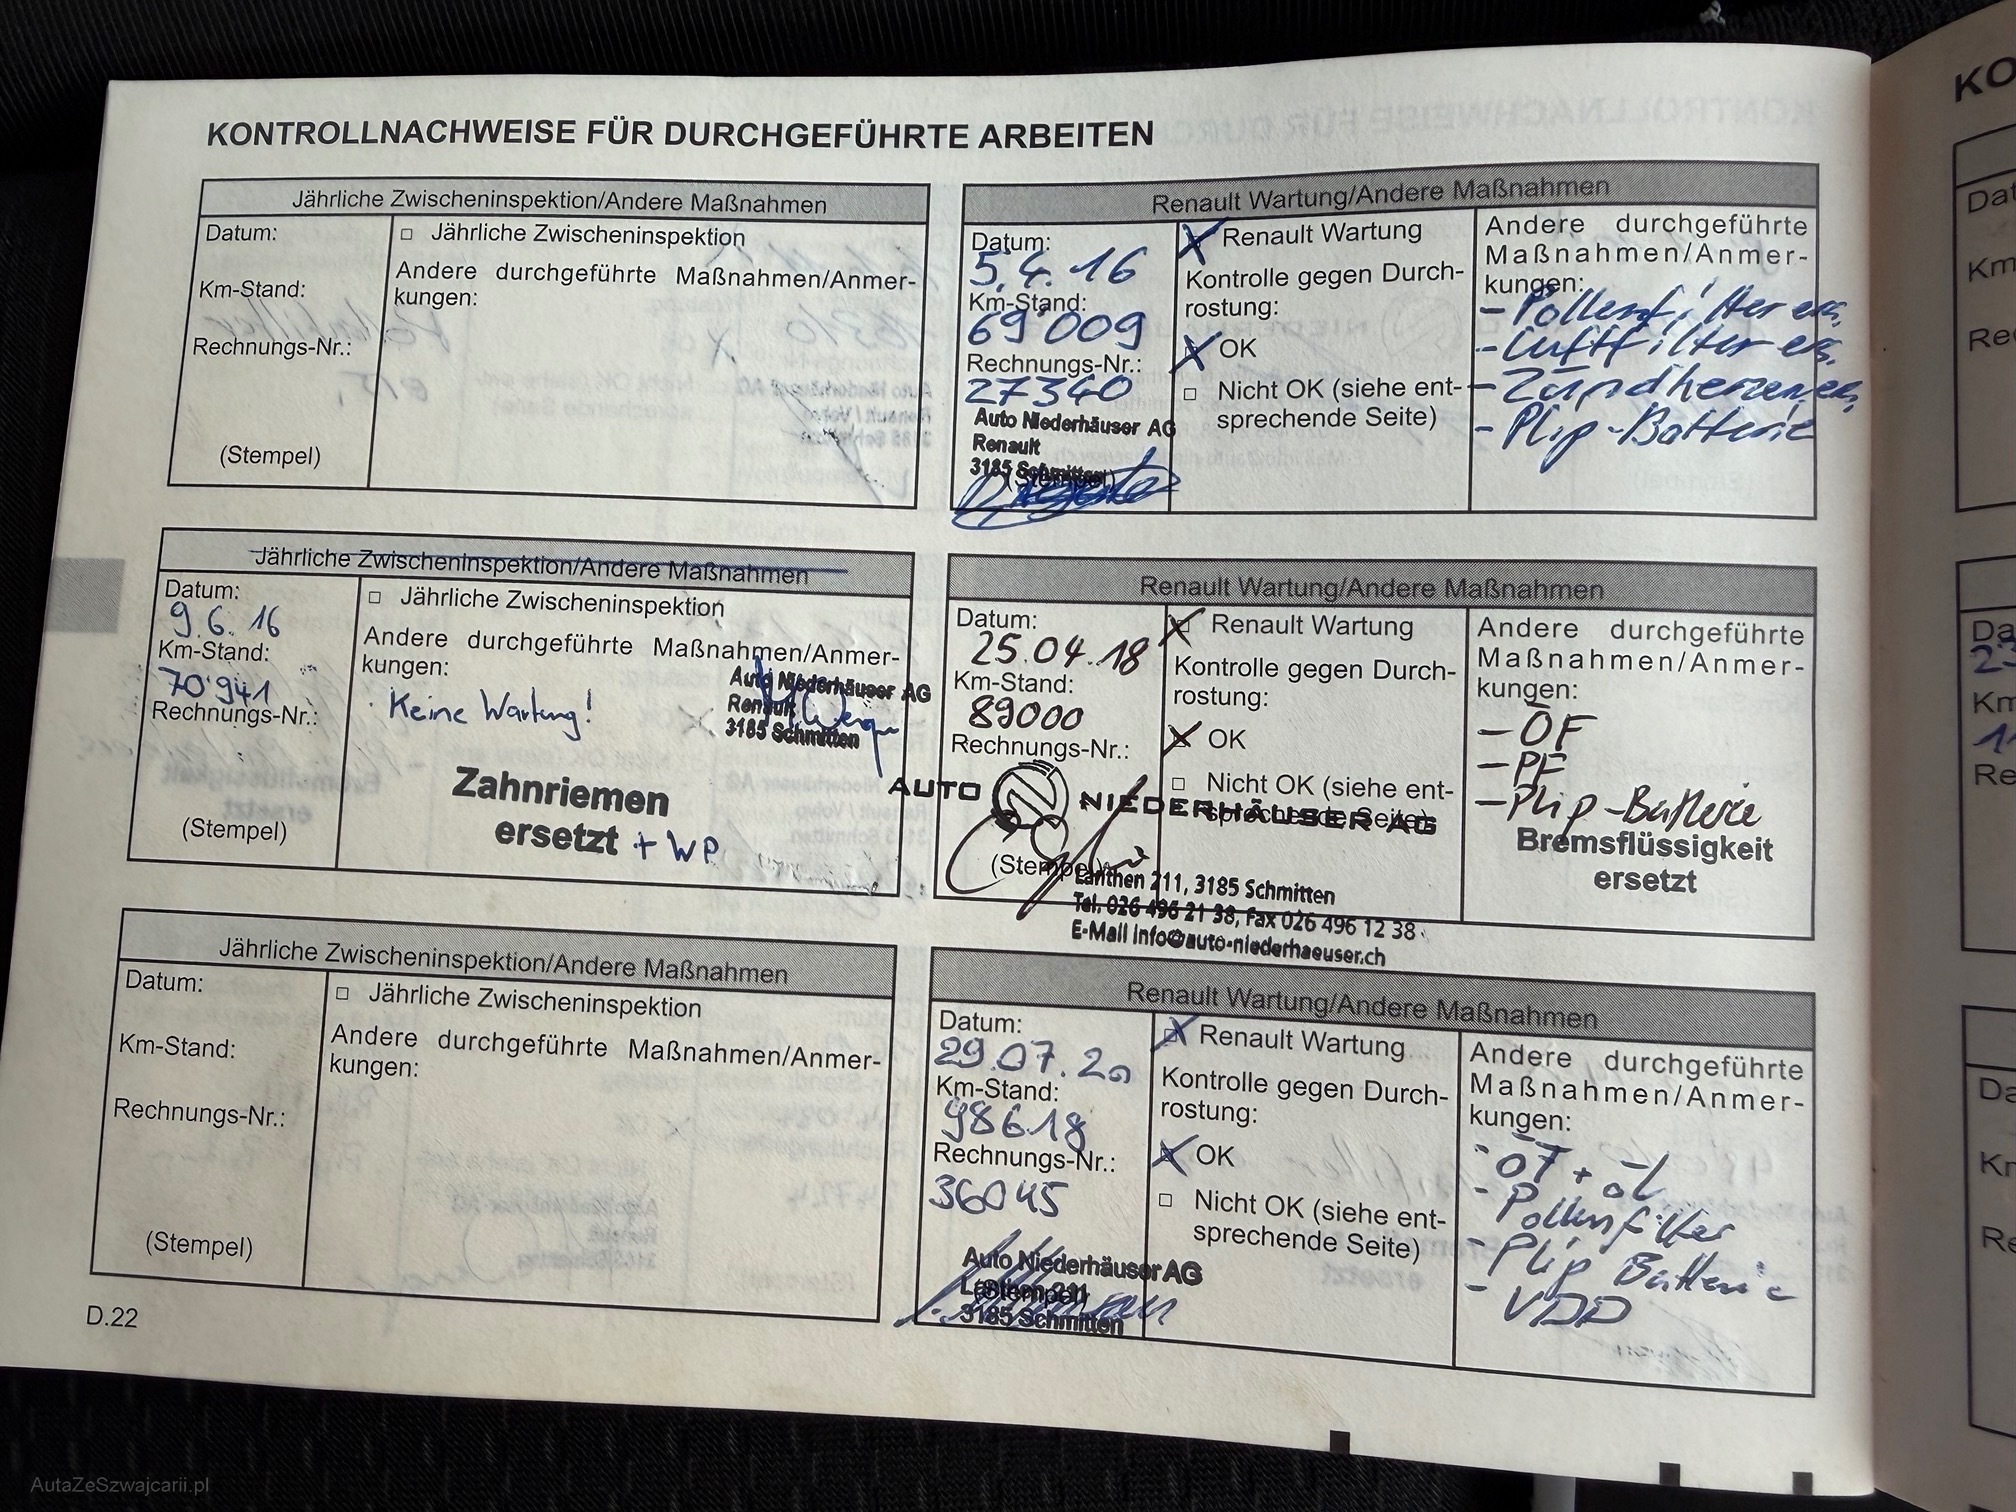 KONTROLLNACHWEISE FÜR DURCHGEFÜHRTE ARBEITEN
Jährliche Zwischeninspektion/Andere Maßnahmen
Datum:
□ Jährliche Zwischeninspektion
Andere durchgeführte Maßnahmen/Anmer-
kungen:
Km-Stand:
Rechnungs-Nr.:
(Stempel)
Renault Wartung/Andere Maßnahmen
Datum:
5.4.16
Km-Stand:
69'009
Rechnungs-Nr.:
27340
Auto Niederhäuser AG
Renault
3185 Schmitten
(Stempel)
Renault Wartung
Kontrolle gegen Durch-
rostung:
OK
□ Nicht OK (siehe ent-
sprechende Seite)
Andere durchgeführte
Maßnahmen/Anmer-
kungen:
- Pollenfilter ers.
- Luftfilter ers.
- Zündkerzen ers.
- Plip-Batterie
Jährliche Zwischeninspektion/Andere Maßnahmen
Datum:
9.6.16
Km-Stand:
70'941
Rechnungs-Nr.:
(Stempel)
□ Jährliche Zwischeninspektion
Andere durchgeführte Maßnahmen/Anmer-
kungen:
Keine Wartung!
Auto Niederhäuser AG
Renault
3185 Schmitten
Zahnriemen
ersetzt + WP
Renault Wartung/Andere Maßnahmen
Datum:
25.04.18
Km-Stand:
89000
Rechnungs-Nr.:
(Stempel)
Renault Wartung
Kontrolle gegen Durch-
rostung:
OK
□ Nicht OK (siehe ent-
sprechende Seite)
AUTO NIEDERHÄUSER AG
Lanthen 211, 3185 Schmitten
Tel. 026 496 21 38, Fax 026 496 12 38
E-Mail info@auto-niederhaeuser.ch
Andere durchgeführte
Maßnahmen/Anmer-
kungen:
- ÖF
- PF
- Plip-Batterie
Bremsflüssigkeit
ersetzt
Jährliche Zwischeninspektion/Andere Maßnahmen
Datum:
□ Jährliche Zwischeninspektion
Andere durchgeführte Maßnahmen/Anmer-
kungen:
Km-Stand:
Rechnungs-Nr.:
(Stempel)
Renault Wartung/Andere Maßnahmen
Datum:
29.07.20
Km-Stand:
98618
Rechnungs-Nr.:
36045
Auto Niederhäuser AG
Lanthen 211
(Stempel)
3185 Schmitten
Renault Wartung
Kontrolle gegen Durch-
rostung:
OK
□ Nicht OK (siehe ent-
sprechende Seite)
Andere durchgeführte
Maßnahmen/Anmer-
kungen:
- ÖF + ÖL
- Pollenfilter
- Plip Batterie
- VDD
D.22
KO
Km
AutaZeSzwajcarii.pl